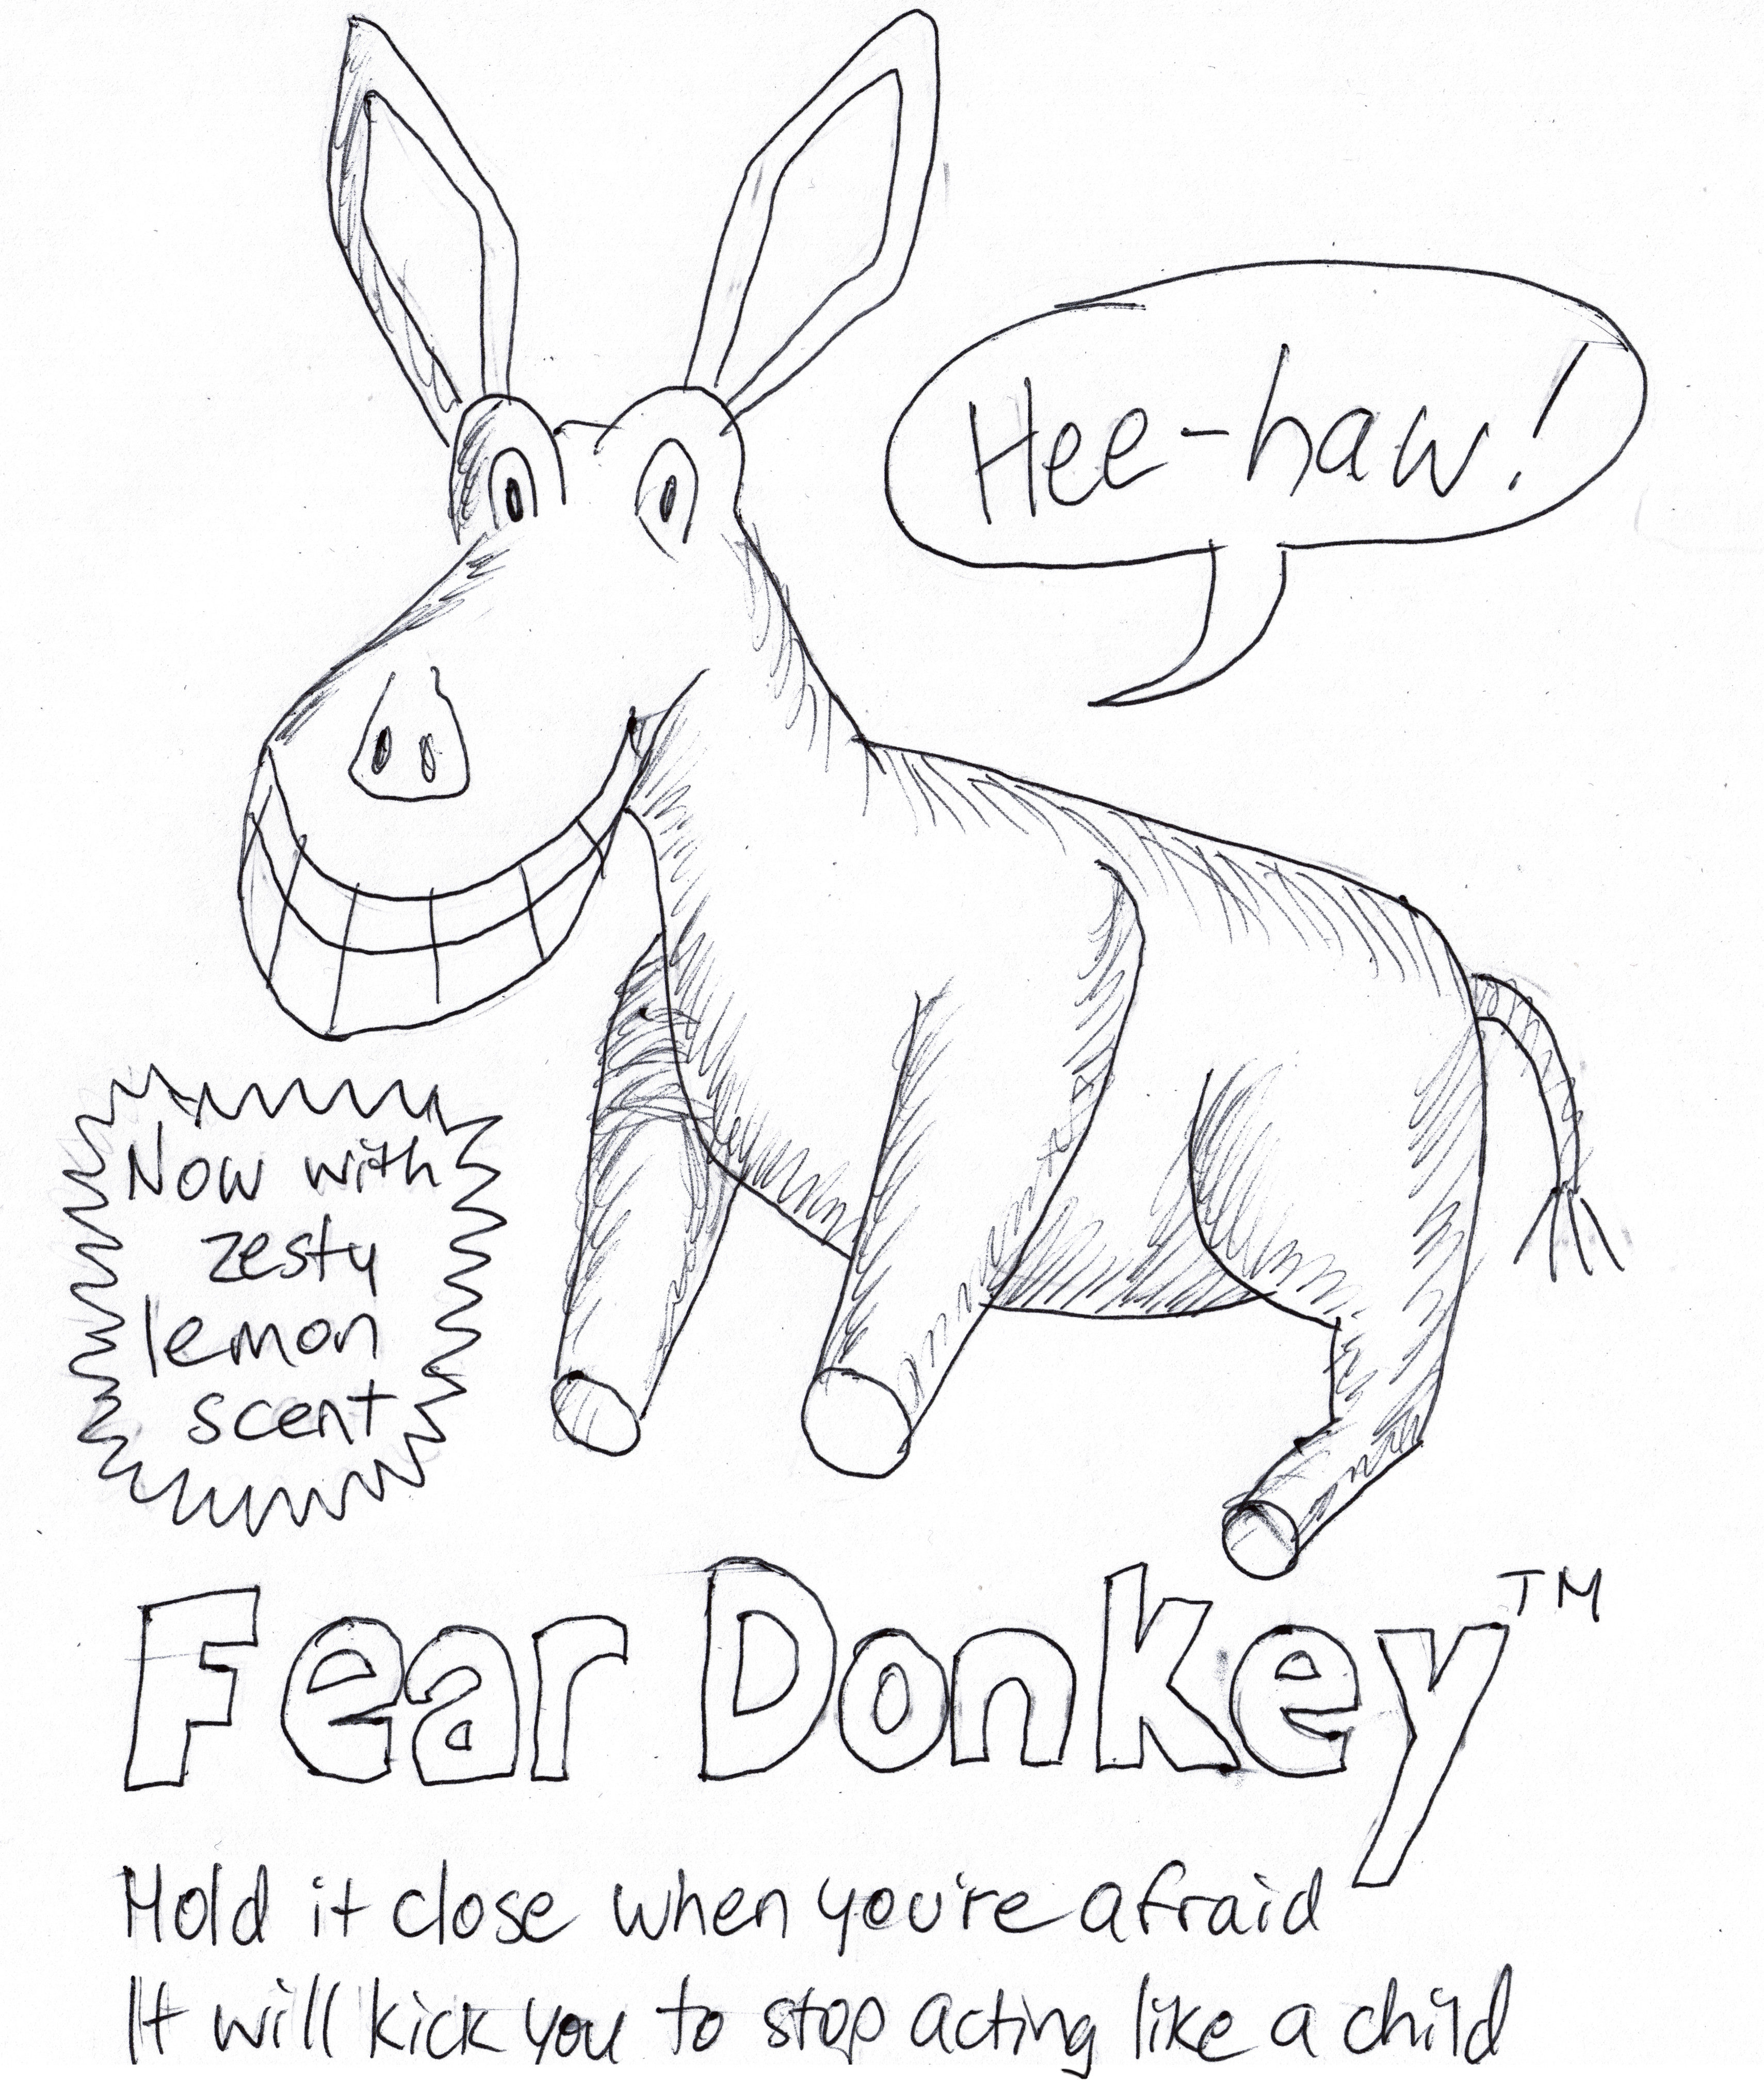 Hee-haw!
Now with
zesty
lemon
scent
Fear Donkey™
Hold it close when you're afraid
It will kick you to stop acting like a child